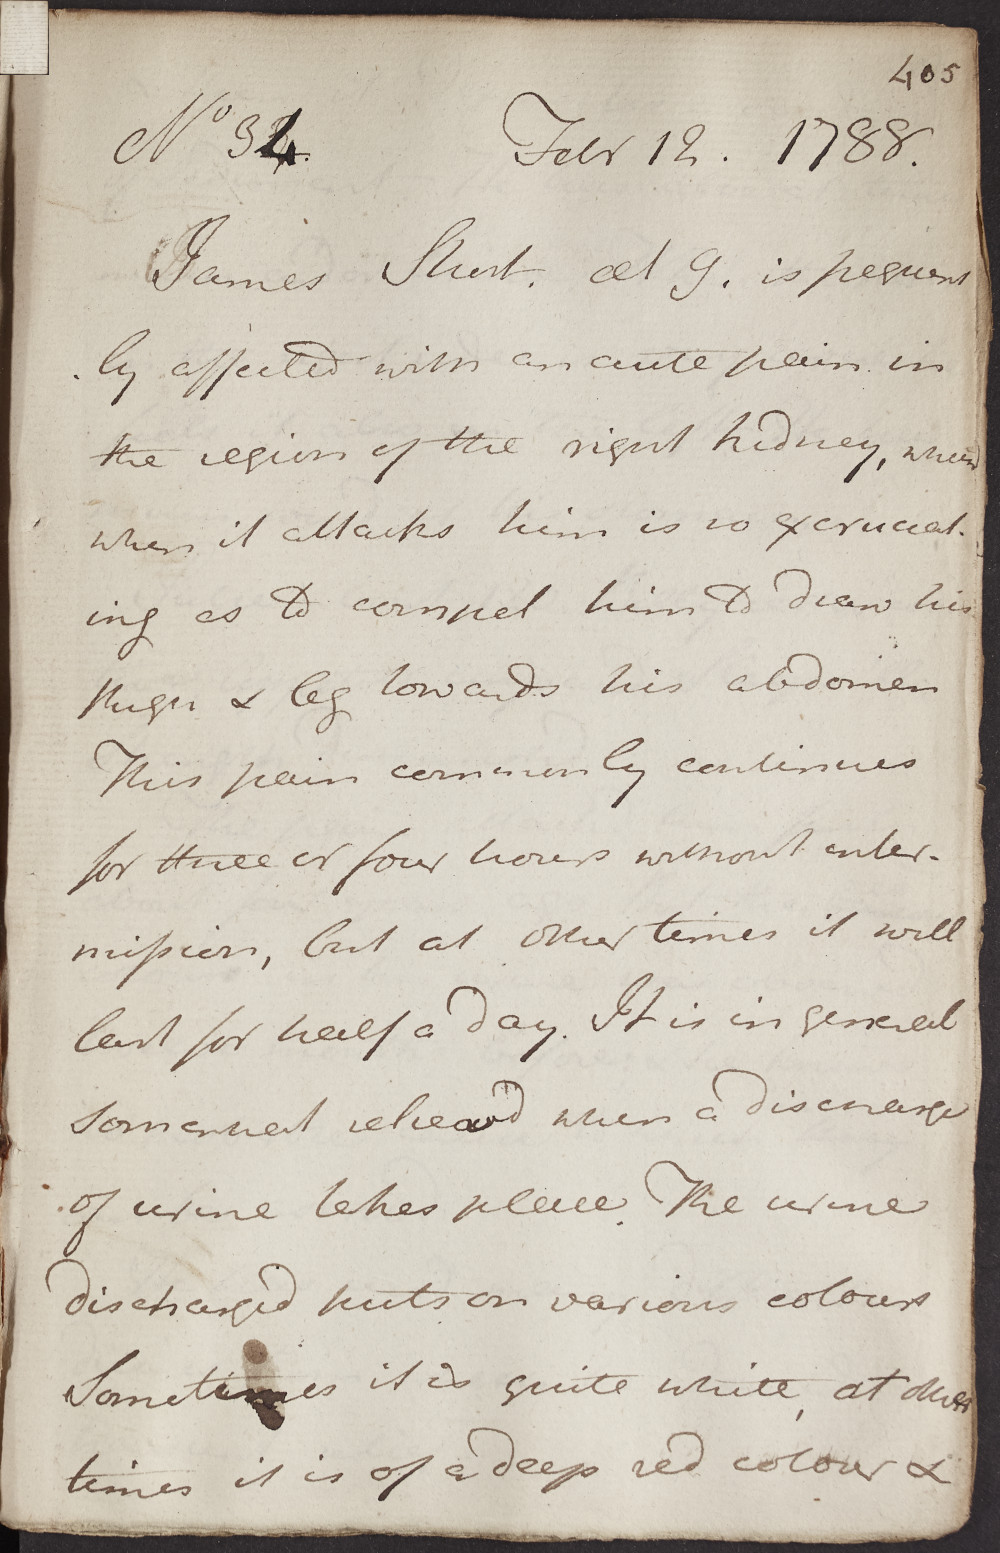 405
No 34. Febr 12. 1788.
James Shert. æt 9. is frequent
ly affected with an acute pain in
the region of the right kidney, which
when it attacks him is so excruciat-
ing as to compel him to draw his
thigh & leg towards his abdomen
This pain commonly continues
for three or four hours without inter-
mission, but at other times it will
last for half a day. It is in general
somewhat relieved when a discharge
of urine takes place. The urine
discharged puts on various colours
Sometimes it is quite white, at other
times it is of a deep red colour &